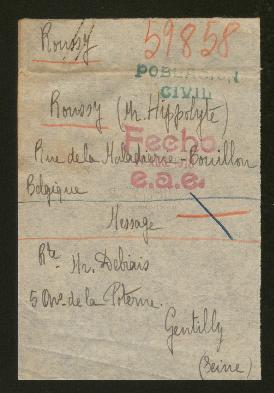 Roussy
59858
POBLACION
CIVIL
Roussy (Mr. Hippolyte)
Fecho
Rue de la Maladrerie - Bouillon
e.a.e.
Belgique
Message
Rte Mr. Debiais
5 Ave de la Poterne.
Gentilly
(Seine)